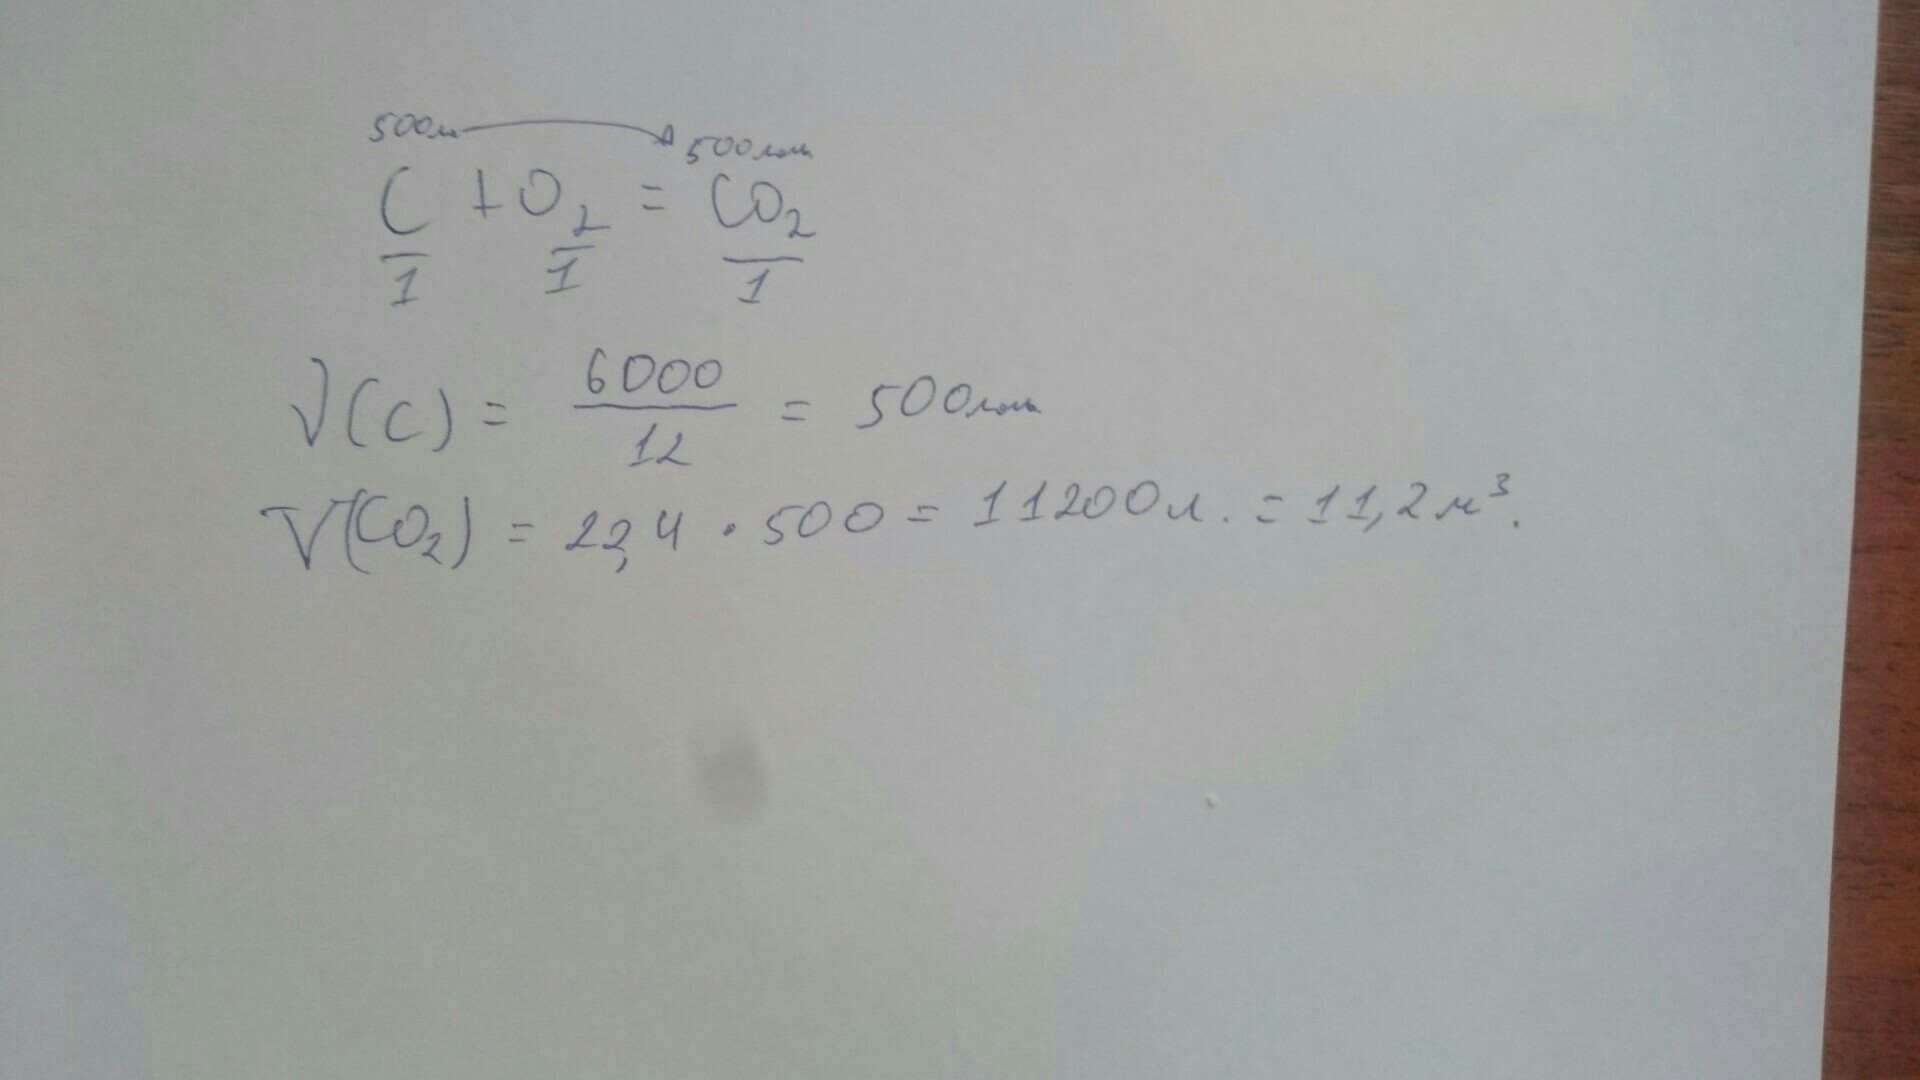 500м 500моль
C + O2 = CO2
1 1 1
ν(C) = 6000/12 = 500моль
V(CO2) = 22,4 · 500 = 11200л. = 11,2 м³.